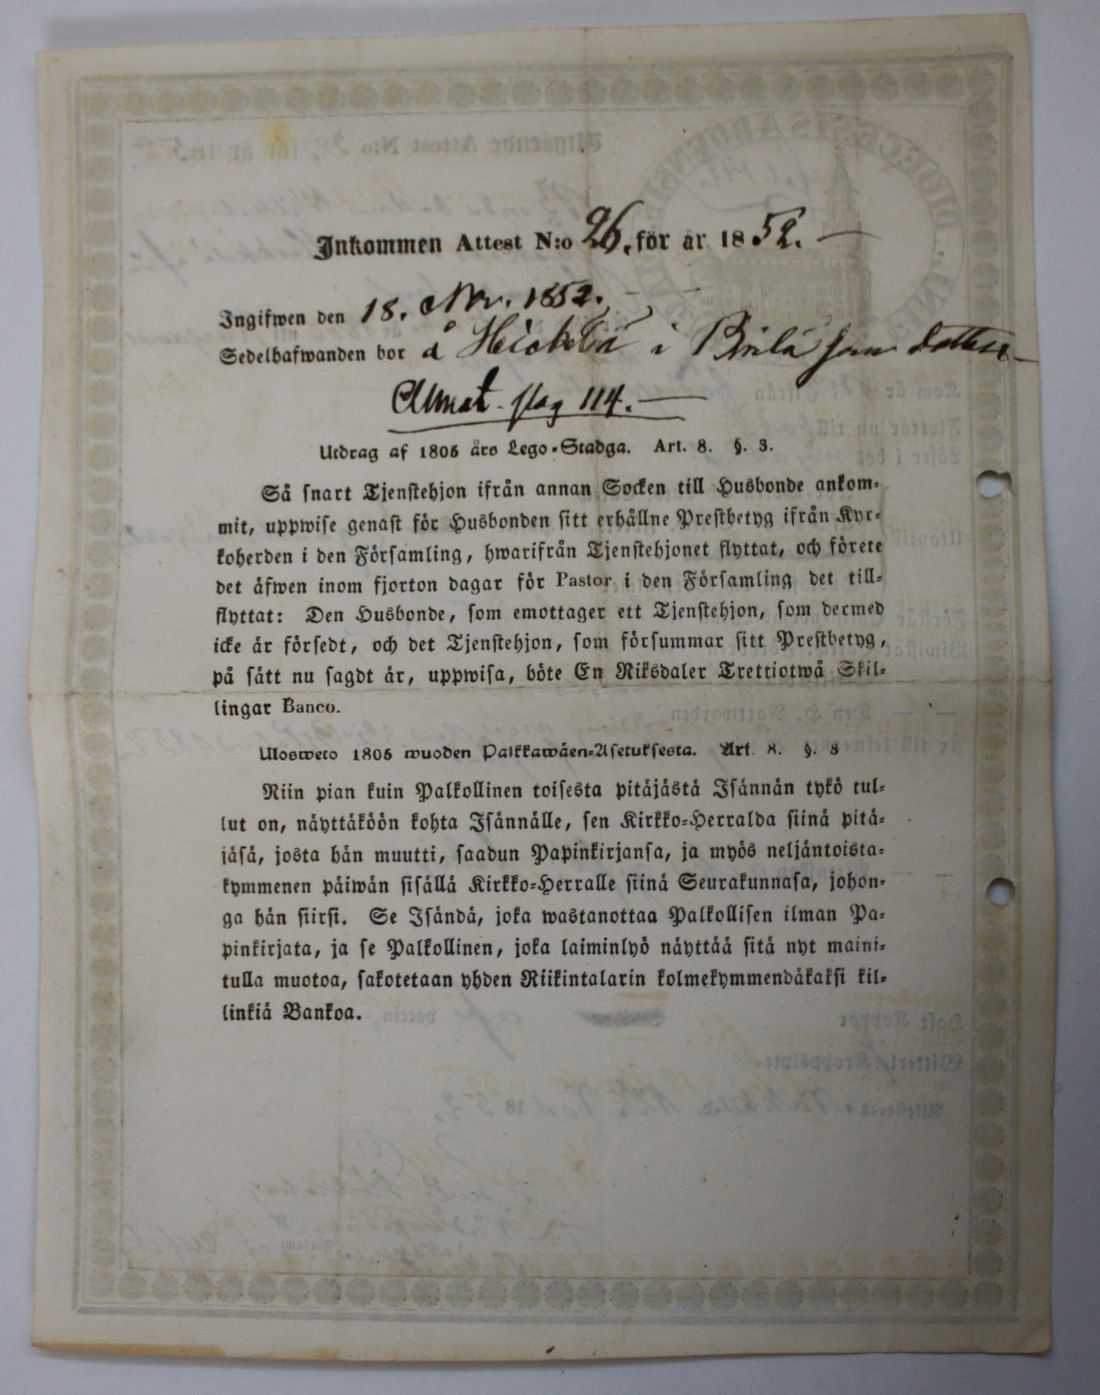 Inkommen Attest N:o 26. för år 1852.
Ingifwen den 18. Nov. 1852.
Sedelhafwanden bor å Heickelä i som
pag 114.
Utdrag af 1805 års Lego-Stadga. Art. 8. §. 3.
Så snart Tjenstehjon ifrån annan Socken till Husbonde ankom-
mit, uppwise genast för Husbonden sitt erhållne Prestbetyg ifrån Kyr-
koherden i den Församling, hwarifrån Tjenstehjonet flyttat, och förete
det äfwen inom fjorton dagar för Pastor i den Församling det till-
flyttat: Den Husbonde, som emottager ett Tjenstehjon, som dermed
icke är försedt, och det Tjenstehjon, som försummar sitt Prestbetyg,
på sätt nu sagdt är, uppwisa, böte En Riksdaler Trettiotwå Skil-
lingar Banco.
Ulosweto 1805 wuoden Palkkawäen-Asetuksesta. Art. 8. §. 3
Niin pian kuin Palkollinen toisesta pitäjästä Isännän tykö tul-
lut on, näyttäköön kohta Isännälle, sen Kirkko-Herralda siinä pitä-
jäsä, josta hän muutti, saadun Papinkirjansa, ja myös neljäntoista-
kymmenen päiwän sisällä Kirkko-Herralle siinä Seurakunnasa, johon-
ga hän siirsi. Se Isändä, joka wastanottaa Palkollisen ilman Pa-
pinkirjata, ja se Palkollinen, joka laiminlyö näyttää sitä nyt maini-
tulla muotoa, sakotetaan yhden Riikintalarin kolmekymmendäkaksi kil-
linkiä Bankoa.